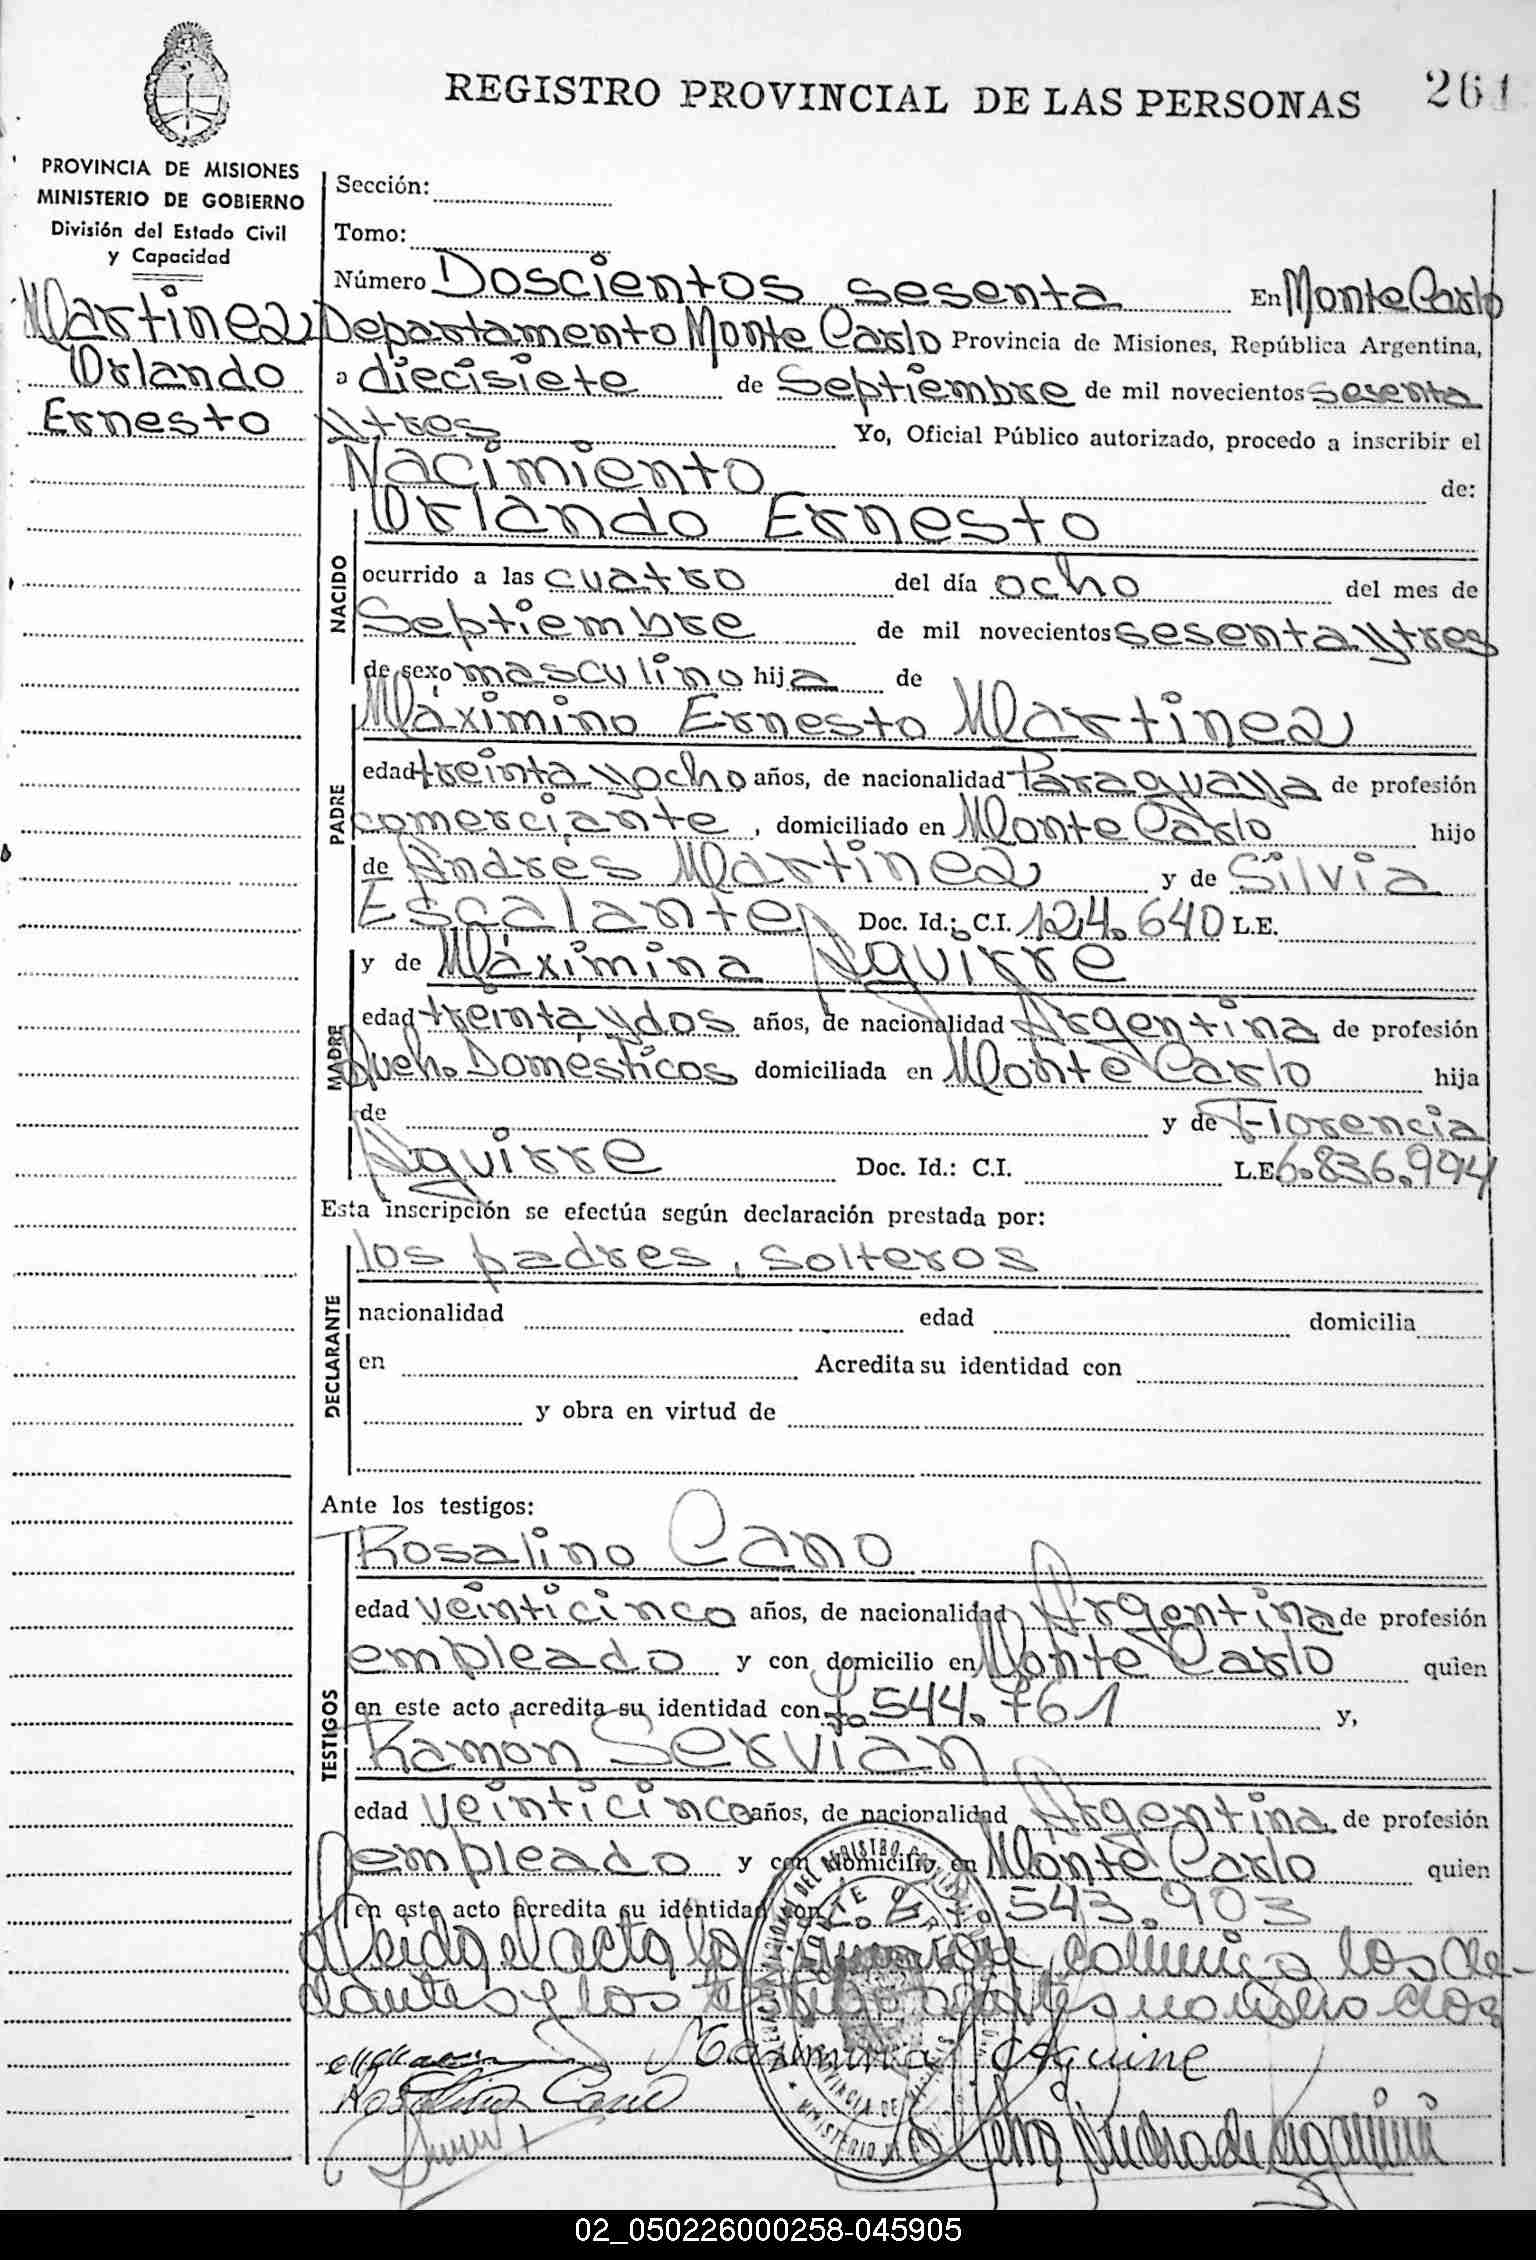 REGISTRO PROVINCIAL DE LAS PERSONAS 261
PROVINCIA DE MISIONES
MINISTERIO DE GOBIERNO
División del Estado Civil
y Capacidad
Martinez
Orlando
Ernesto
Sección:
Tomo:
Número Doscientos sesenta En Monte Carlo
Departamento Monte Carlo Provincia de Misiones, República Argentina,
a diecisiete de Septiembre de mil novecientos sesenta
y tres Yo, Oficial Público autorizado, procedo a inscribir el
Nacimiento de:
NACIDO
Orlando Ernesto
ocurrido a las cuatro del día ocho del mes de
Septiembre de mil novecientos sesenta y tres
de sexo masculino hija de
PADRE
Máximino Ernesto Martinez
edad treinta y ocho años, de nacionalidad Paraguaya de profesión
comerciante, domiciliado en Monte Carlo hijo
de Andrés Martinez y de Silvia
Escalante Doc. Id.: C.I. 124.640 L.E.
MADRE
y de Máximina Aguirre
edad treinta y dos años, de nacionalidad Argentina de profesión
Queh. Domésticos domiciliada en Monte Carlo hija
de y de Florencia
Aguirre Doc. Id.: C.I. L.E. 6.836.994
Esta inscripción se efectúa según declaración prestada por:
DECLARANTE
los padres, solteros
nacionalidad edad domicilia
en Acredita su identidad con
y obra en virtud de
Ante los testigos:
TESTIGOS
Rosalino Cano
edad veinticinco años, de nacionalidad Argentina de profesión
empleado y con domicilio en Monte Carlo quien
en este acto acredita su identidad con 7.544.761 y,
Ramon Servian
edad veinticinco años, de nacionalidad Argentina de profesión
empleado y con domicilio en Monte Carlo quien
en este acto acredita su identidad con 543.903
Leido el acta la los de-
y los
Maximina Aguirre
Rosalino Cano
02_050226000258-045905